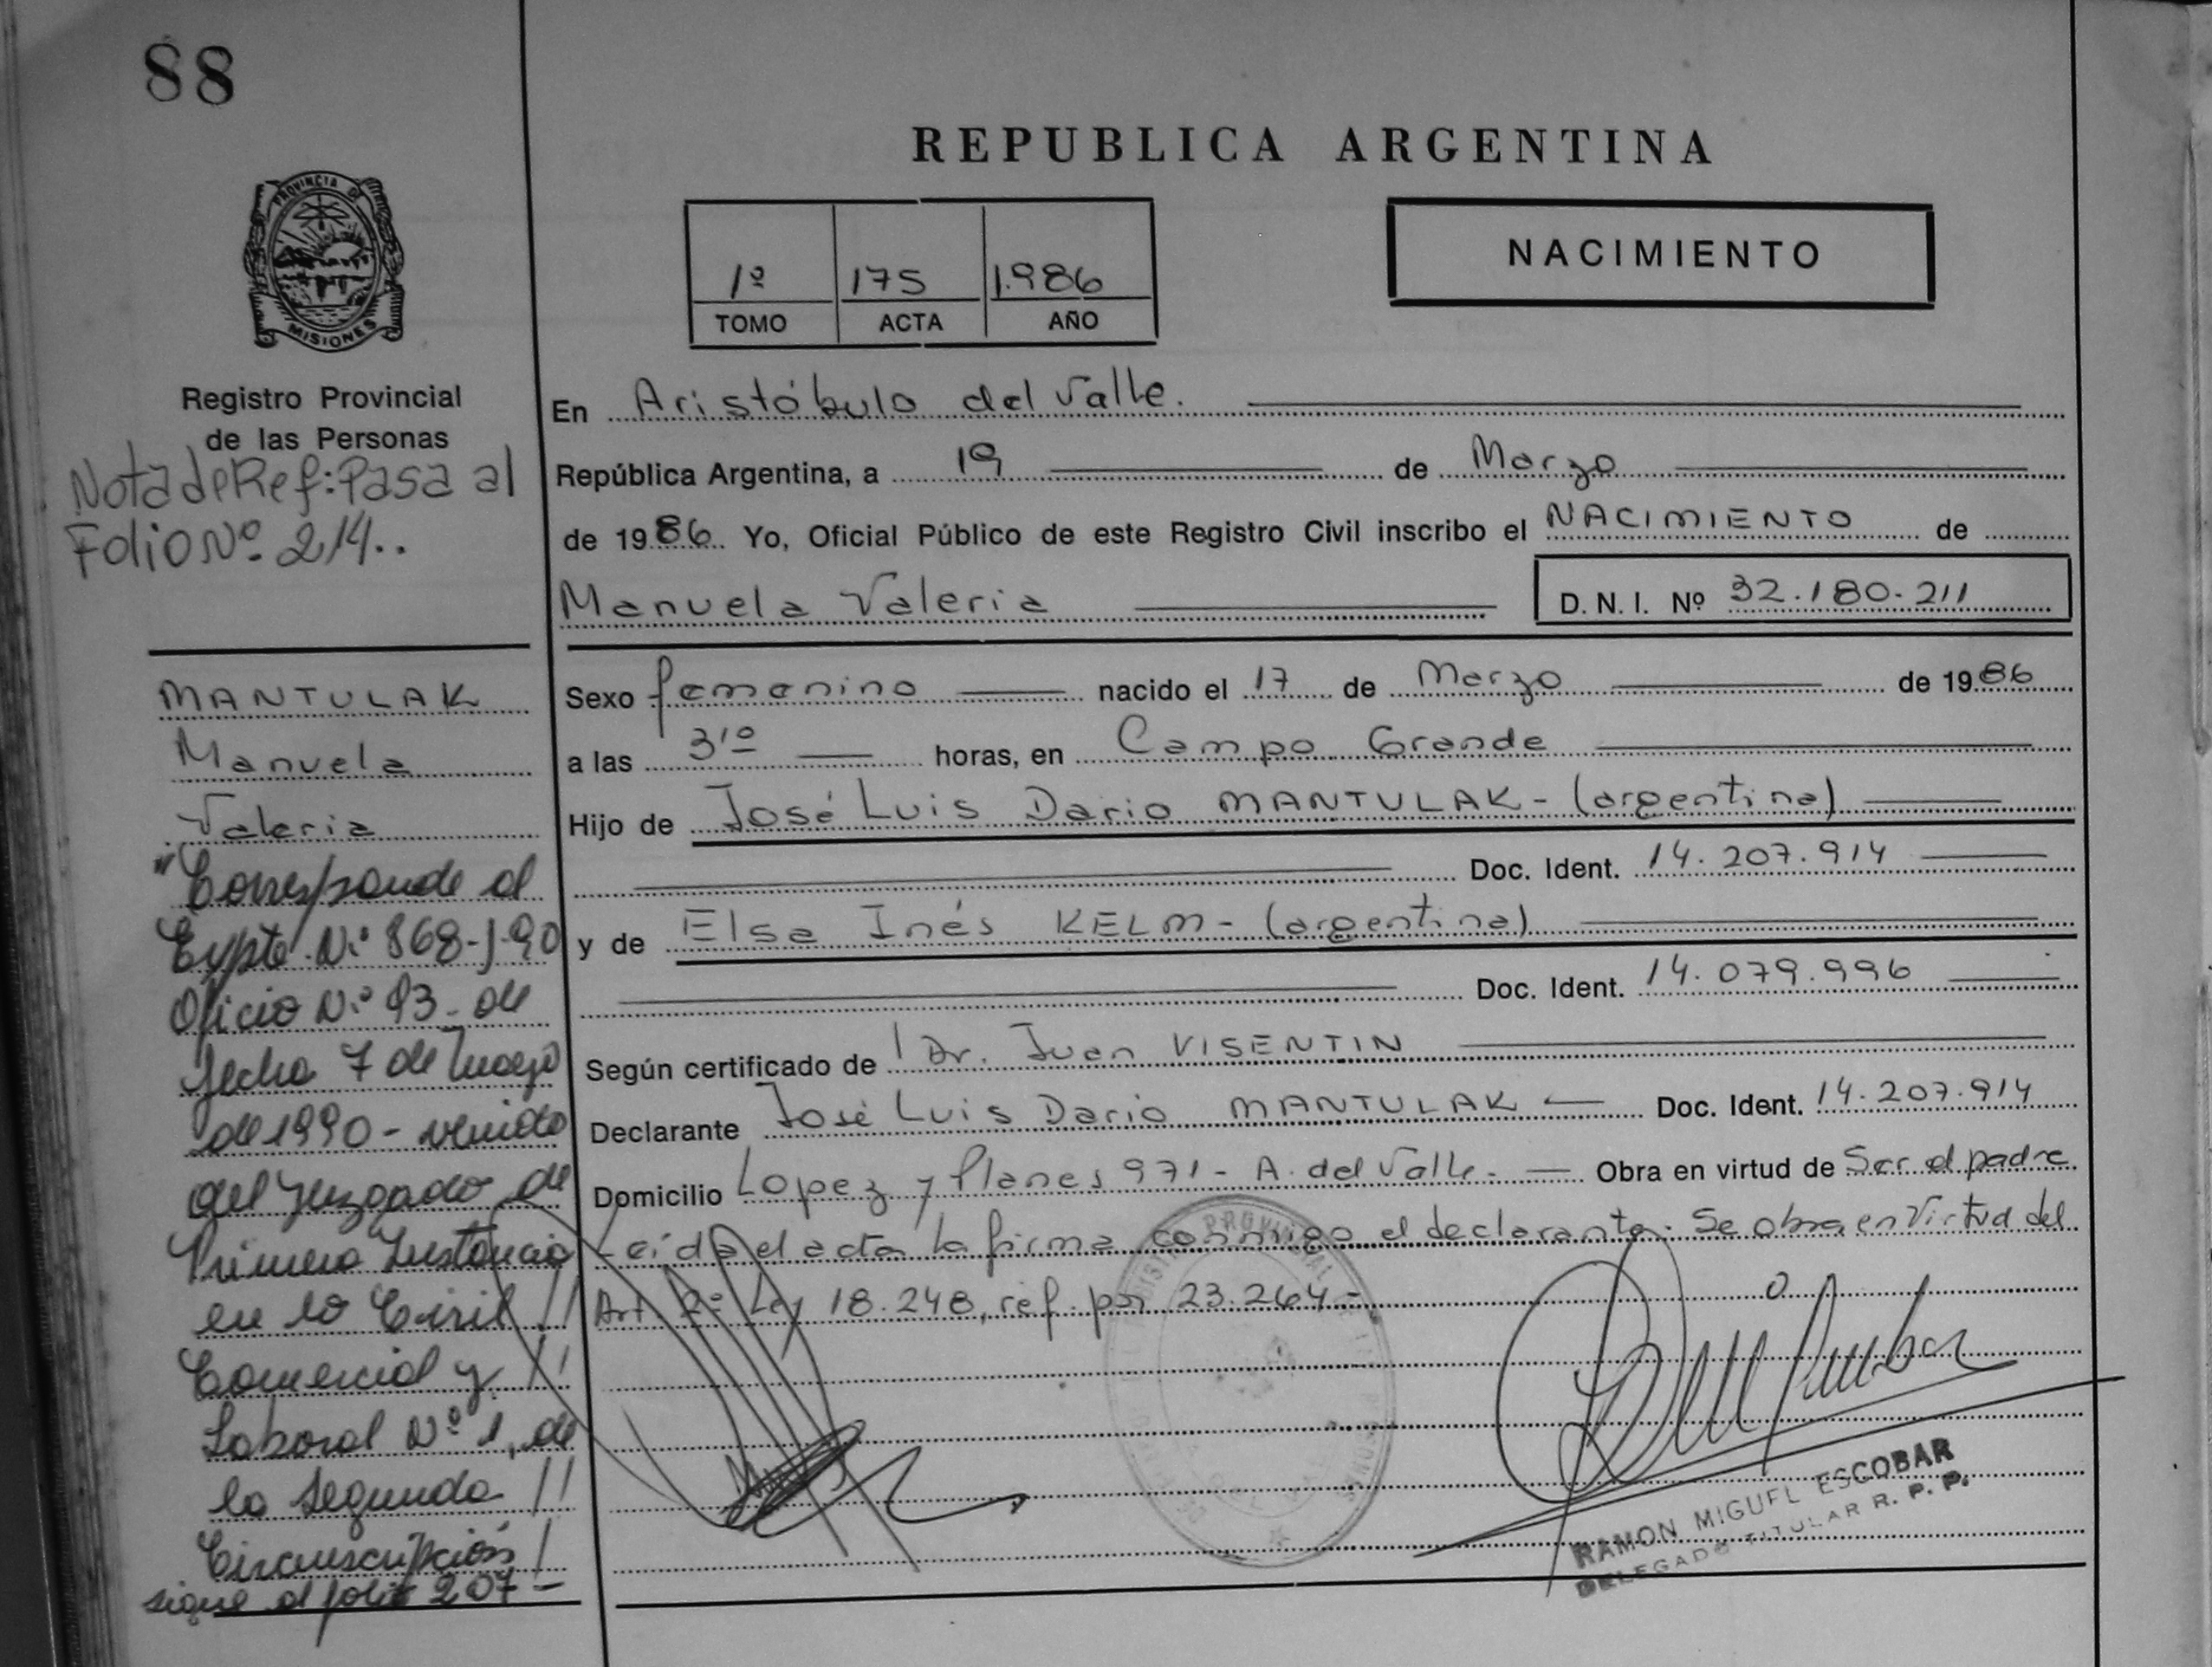 88
REPUBLICA ARGENTINA
PROVINCIA DE
MISIONES
1º 175 1.986
TOMO ACTA AÑO
NACIMIENTO
Registro Provincial
de las Personas
Nota de Ref: Pasa al
Folio Nº 214..
MANTULAK
Manuela
Valeria
"Corresponde al
Expte. Nº 868-J-90
Oficio Nº 93 - de
fecha 7 de Mayo
de 1990 - venido
del Juzgado de
Primera Instancia
en lo Civil //
Comercial y //
Laboral Nº 1, de
la Segunda //
Circunscripción /
sigue al folio 207 -
En Aristóbulo del Valle.
República Argentina, a 19 de Marzo
de 1986 Yo, Oficial Público de este Registro Civil inscribo el NACIMIENTO de
Manuela Valeria D. N. I. Nº 32.180.211
Sexo femenino nacido el 17 de Marzo de 1986
a las 3'º horas, en Campo Grande
Hijo de José Luis Dario MANTULAK - (argentina)
Doc. Ident. 14.207.914
y de Elsa Inés KELM - (argentina)
Doc. Ident. 14.079.996
Según certificado de Dr. Juan VISENTIN
Declarante José Luis Dario MANTULAK Doc. Ident. 14.207.914
Domicilio Lopez y Planes 971 - A. del Valle. - Obra en virtud de Ser el padre
Leída el acta la firma conmigo el declarante. Se obra en virtud del
Art 2º Ley 18.248, ref. por 23.264 -
RAMON MIGUEL ESCOBAR
DELEGADO TITULAR R. P. P.